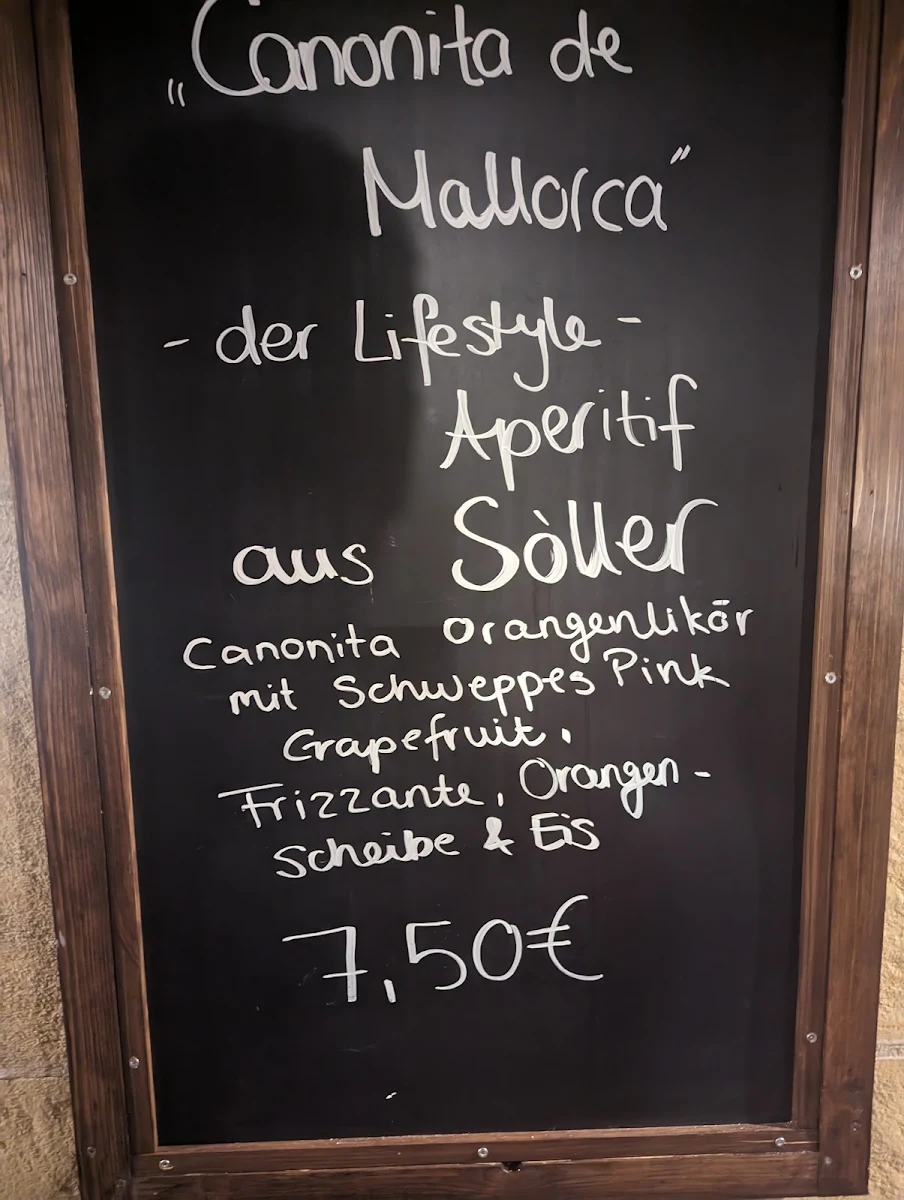 „Canonita de
Mallorca"
- der Lifestyle -
Aperitif
aus Sòller
Canonita Orangenlikör
mit Schweppes Pink
Grapefruit,
Frizzante, Orangen-
scheibe & Eis
7,50€